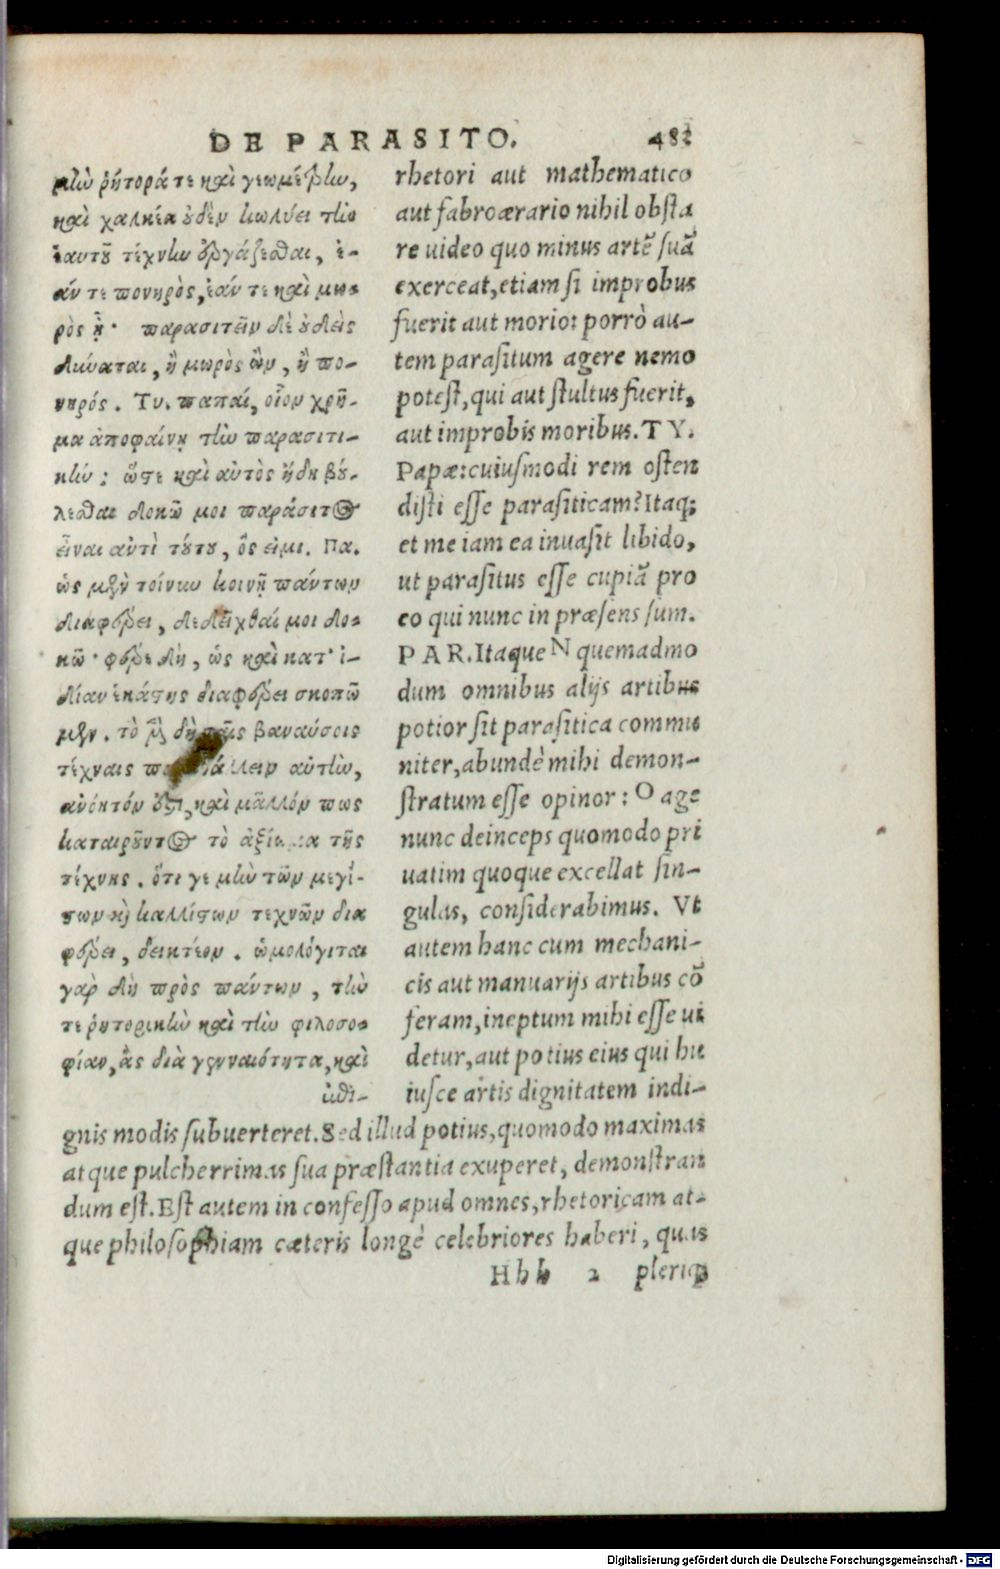 DE PARASITO. 482
μὴν ῥήτορά τε καὶ γεωμέτρην,
καὶ χαλκέα οὐδὲν κωλύει τὴν
ἑαυτοῦ τέχνην ἐργάζεσθαι, ἐ-
άν τε πονηρὸς, ἐάν τε καὶ μω-
ρὸς ᾖ· παρασιτεῖν δὲ οὐδεὶς
δύναται, ἢ μωρὸς ὢν, ἢ πο-
νηρός. Τυ. παπαί, οἷον χρῆ-
μα ἀποφαίνῃ τὴν παρασιτι-
κήν; ὥστε καὶ αὐτὸς ἤδη βού-
λεσθαι δοκῶ μοι παράσιτος
εἶναι ἀντὶ τούτου, ὅς εἰμι. Πα.
ὡς μὲν τοίνυν κοινῇ πάντων
διαφέρει, δεδεῖχθαί μοι δο-
κῶ· φέρε δὴ, ὡς καὶ κατ' ἰ-
δίαν ἑκάστης διαφέρει σκοπῶ
μεν. τὸ μὲν δὴ ταῖς βαναύσοις
τέχναις παραβάλλειν αὐτὴν,
ἀνόητόν ἐστι, καὶ μᾶλλόν πως
καταιροῦντος τὸ ἀξίωμα τῆς
τέχνης. ὅτι γε μὴν τῶν μεγί-
στων καὶ καλλίστων τεχνῶν δια
φέρει, δεικτέον. ὡμολόγιται
γὰρ δὴ πρὸς πάντων, τήν
τε ῥητορικὴν καὶ τὴν φιλοσο-
φίαν, ἃς διὰ γενναιότητα, καὶ
rhetori aut mathematico
aut fabro ærario nihil obsta
re uideo quo minus artẽ suã
exerceat, etiam si improbus
fuerit aut morio: porrò au-
tem parasitum agere nemo
potest, qui aut stultus fuerit,
aut improbis moribus. TY.
Papæ: cuiusmodi rem osten
disti esse parasiticam? Itaq;
et me iam ea inuasit libido,
ut parasitus esse cupiã pro
eo qui nunc in præsens sum.
PAR. Itaque N quemadmo
dum omnibus alijs artibus
potior sit parasitica commu
niter, abundè mihi demon-
stratum esse opinor: O age
nunc deinceps quomodo pri
uatim quoque excellat sin-
gulas, considerabimus. Vt
autem hanc cum mechani-
cis aut manuarijs artibus cõ
feram, ineptum mihi esse ui
detur, aut potius eius qui hu
iusce artis dignitatem indi-
gnis modis subuerteret. Sed illud potius, quomodo maximas
atque pulcherrimas sua præstantia exuperet, demonstran
dum est. Est autem in confesso apud omnes, rhetoricam at-
que philosophiam cæteris longè celebriores haberi, quas
Hhh 2 pleriq;
Digitalisierung gefördert durch die Deutsche Forschungsgemeinschaft - DFG